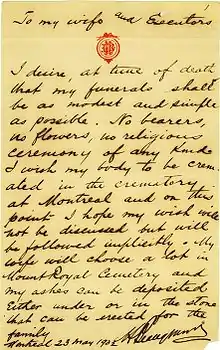 To my wife and Executors
I desire, at time of death
that my funerals shall
be as modest and simple
as possible. No bearers,
no flowers, no religious
ceremony of any kind
I wish my body to be crem-
ated in the crematory
at Montreal and on this
point I hope my wish will
not be discussed but will
be followed implicitly. My
wife will choose a lot in
Mount Royal Cemetery and
my ashes can be deposited
Either under or in the stone
that can be erected for the
family
Montreal 23 May